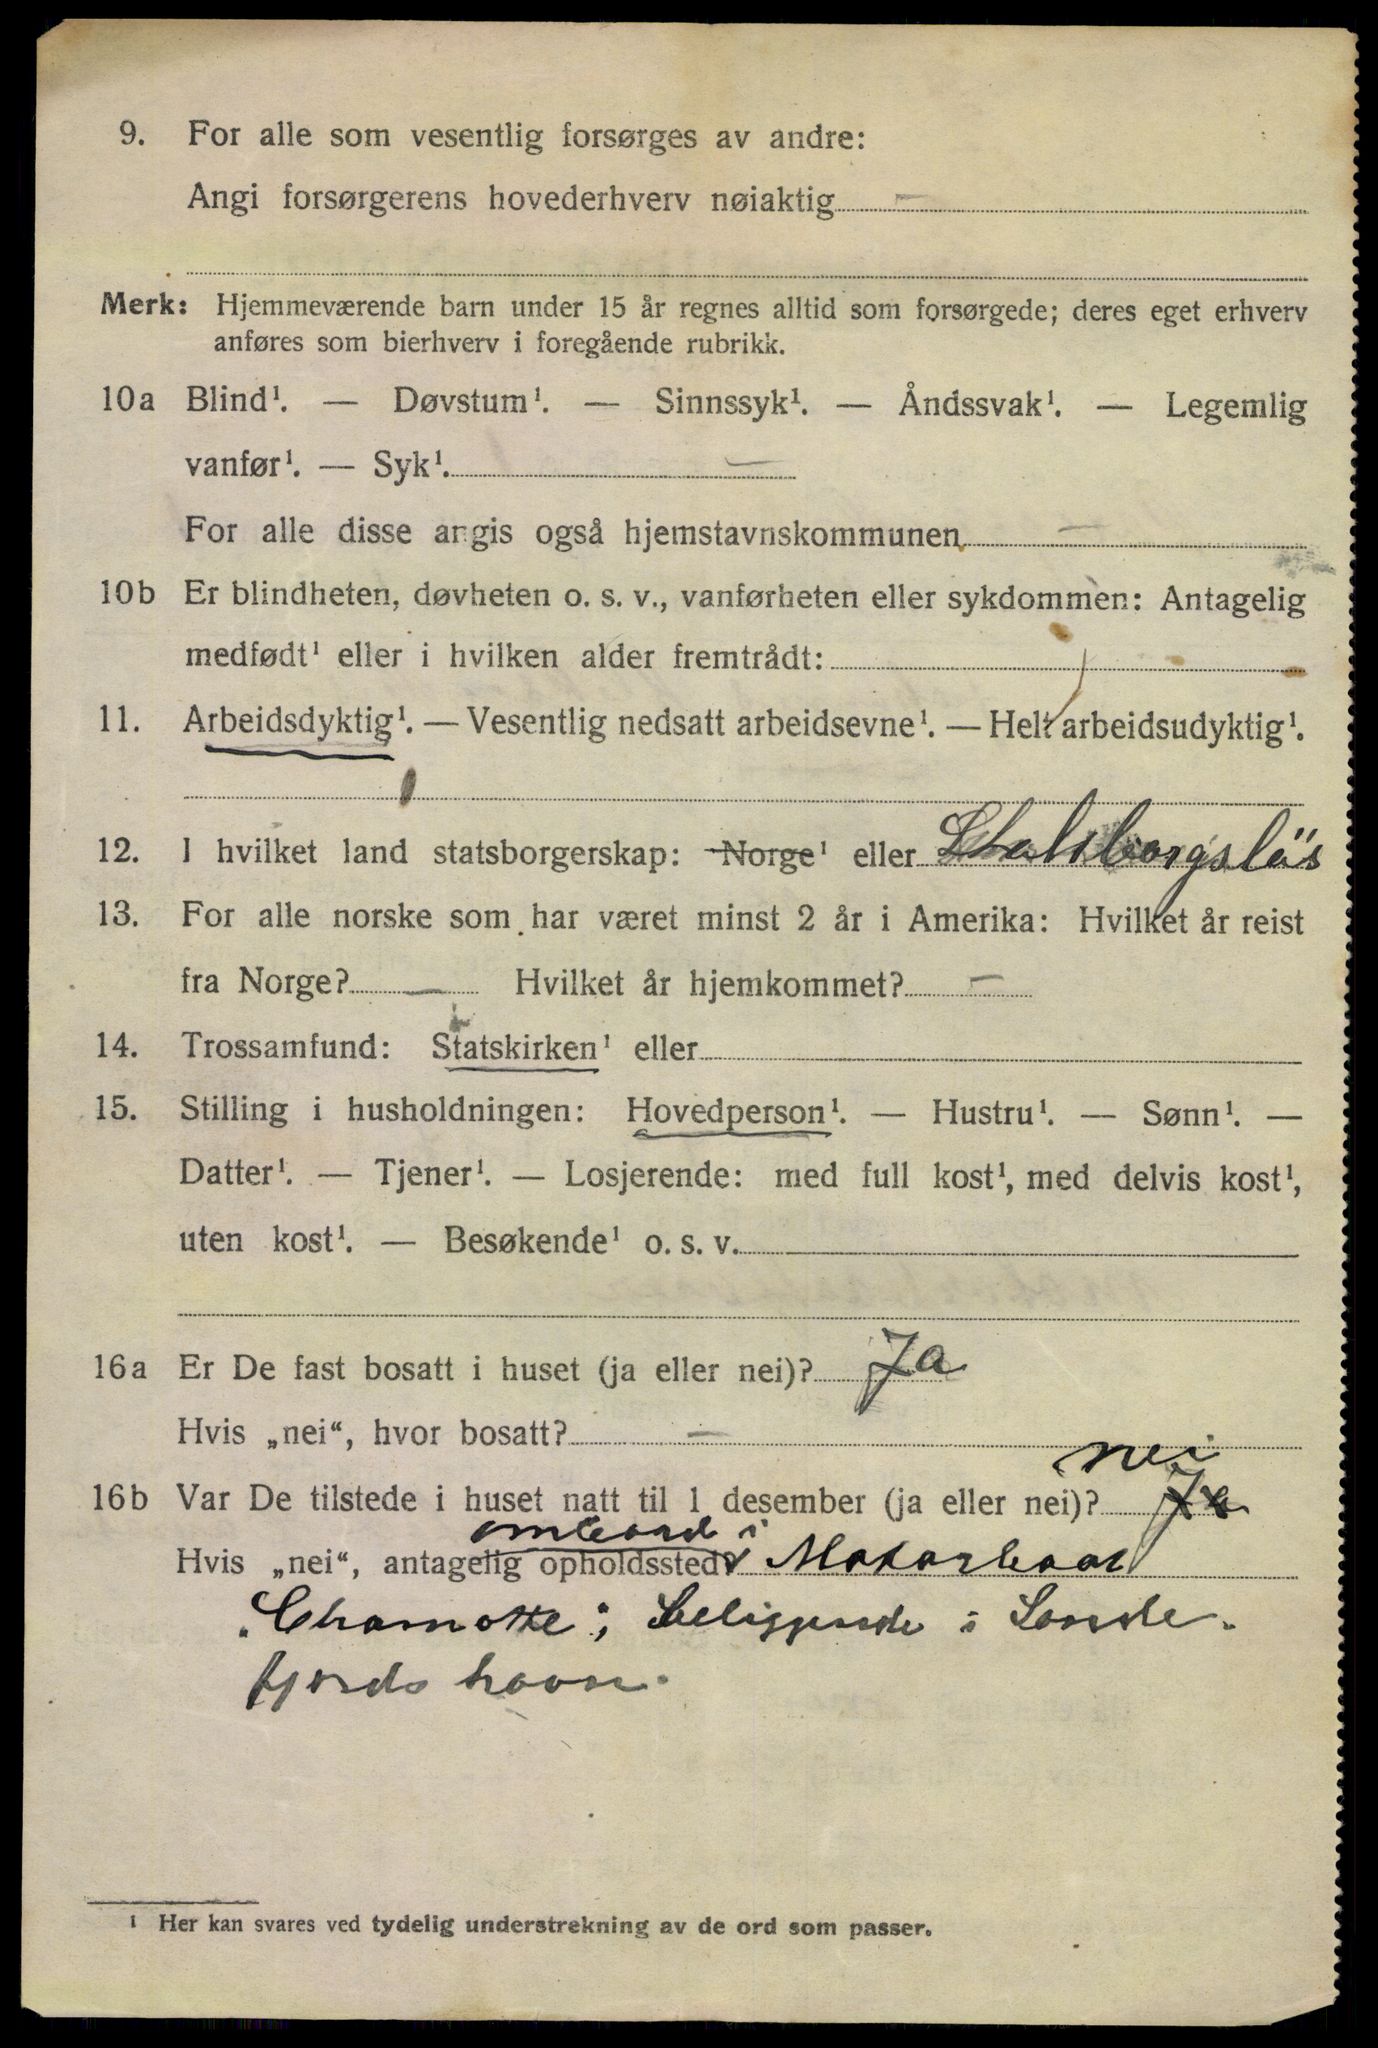 9. For alle som vesentlig forsørges av andre:
Angi forsørgerens hovederhverv nøiaktig —
Merk: Hjemmeværende barn under 15 år regnes alltid som forsørgede; deres eget erhverv
anføres som bierhverv i foregående rubrikk.
10a Blind¹. — Døvstum¹. — Sinnssyk¹. — Åndssvak¹. — Legemlig
vanfør¹. — Syk¹. —
For alle disse angis også hjemstavnskommunen —
10b Er blindheten, døvheten o. s. v., vanførheten eller sykdommen: Antagelig
medfødt¹ eller i hvilken alder fremtrådt:
11. Arbeidsdyktig¹. — Vesentlig nedsatt arbeidsevne¹. — Helt arbeidsudyktig¹.
12. I hvilket land statsborgerskap: Norge¹ eller Statsborgsløs
13. For alle norske som har været minst 2 år i Amerika: Hvilket år reist
fra Norge? — Hvilket år hjemkommet? —
14. Trossamfund: Statskirken¹ eller
15. Stilling i husholdningen: Hovedperson¹. — Hustru¹. — Sønn¹. —
Datter¹. — Tjener¹. — Losjerende: med full kost¹, med delvis kost¹,
uten kost¹. — Besøkende¹ o. s. v.
16a Er De fast bosatt i huset (ja eller nei)? Ja
Hvis „nei“, hvor bosatt? —
nei
16b Var De tilstede i huset natt til 1 desember (ja eller nei)? Ja
ombord i
Hvis „nei“, antagelig opholdssted
fjords havn.
¹ Her kan svares ved tydelig understrekning av de ord som passer.